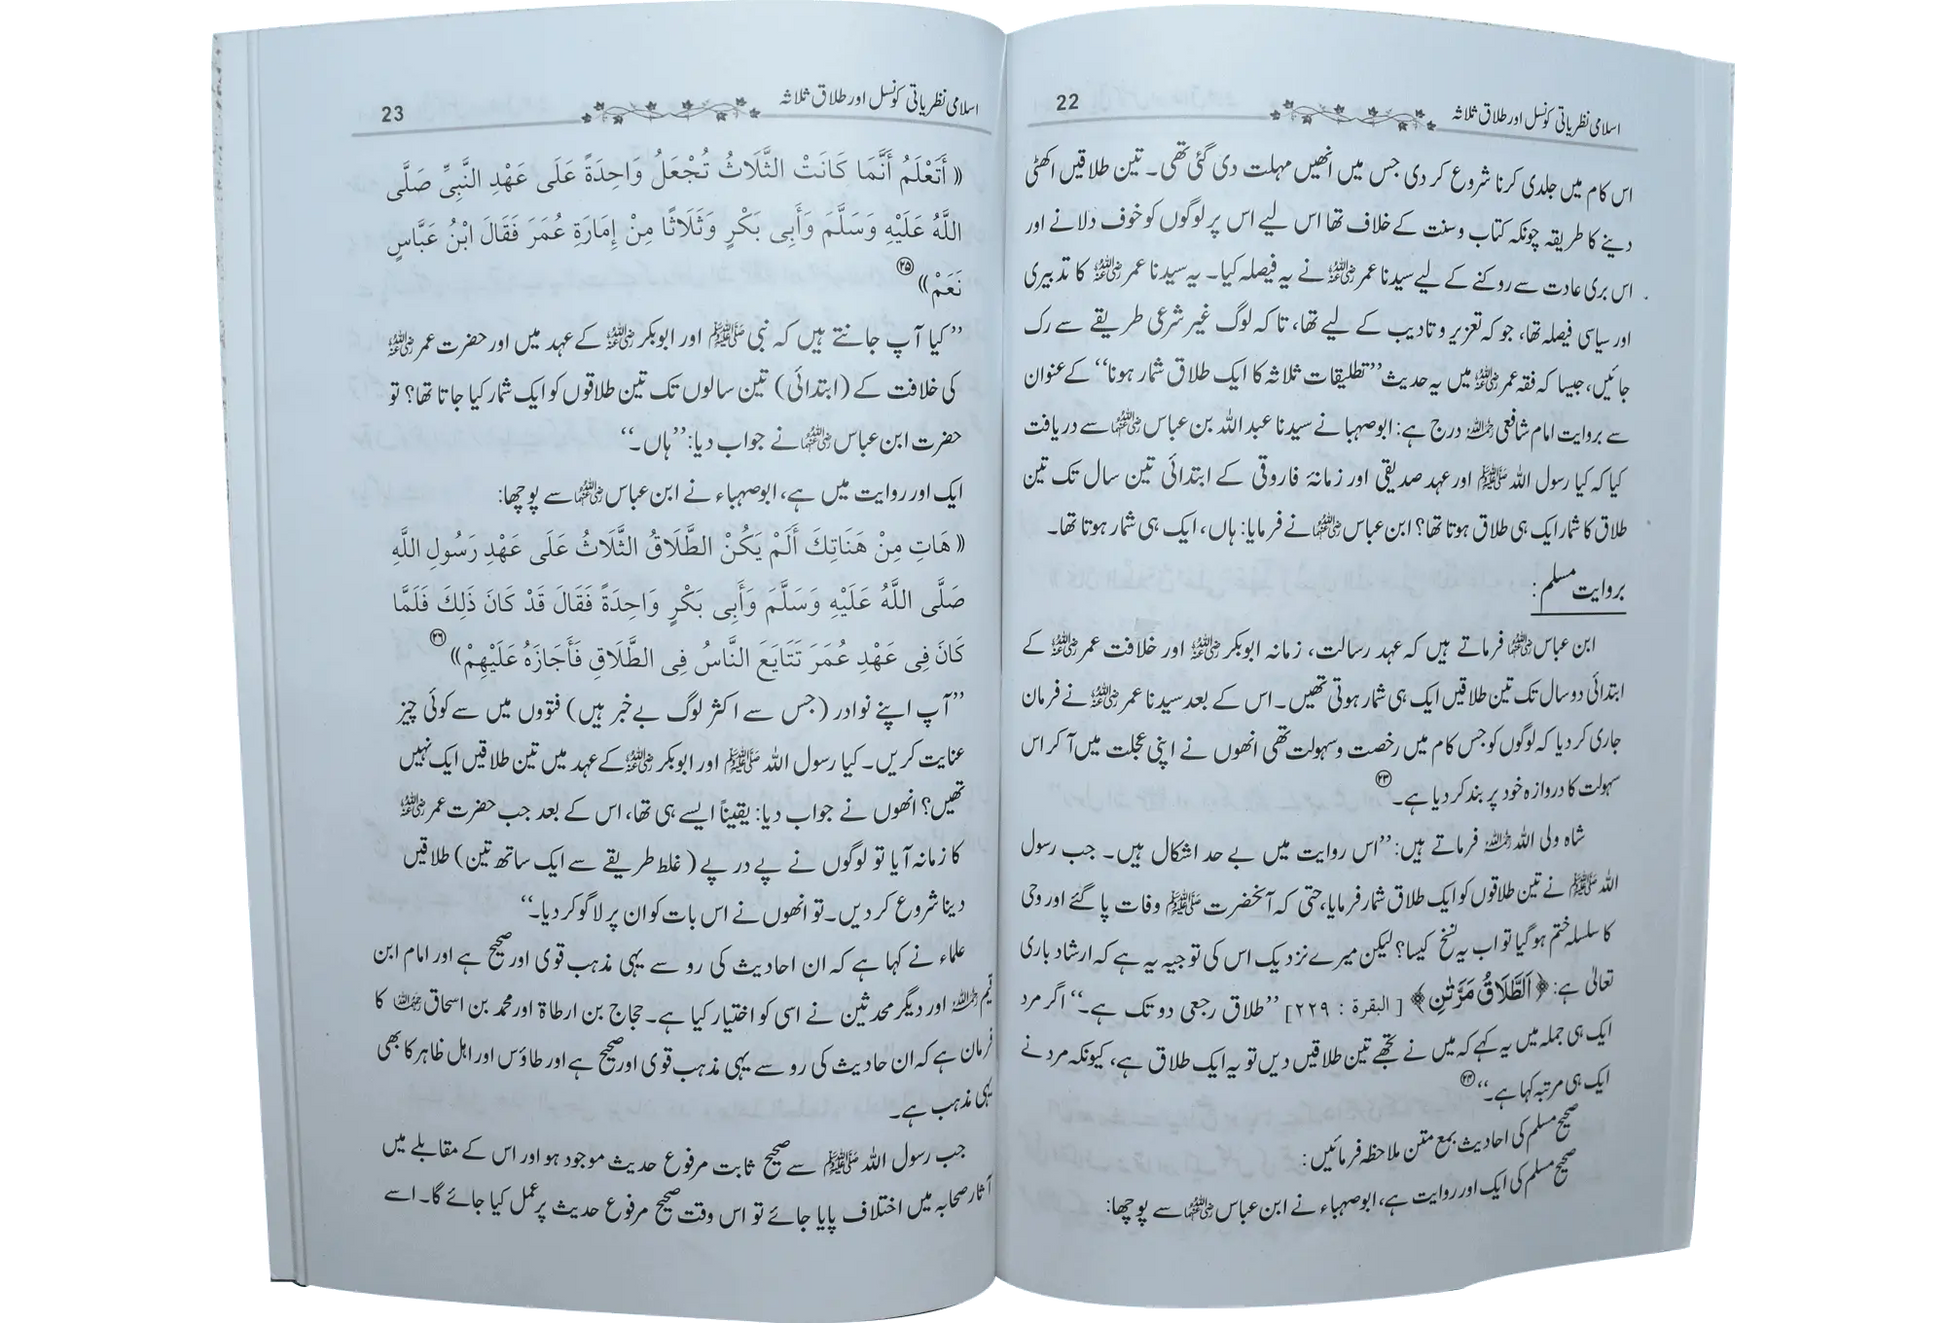 اسلامی نظریاتی کونسل اور طلاق ثلاثہ 22
اس کام میں جلدی کرنا شروع کر دی جس میں انھیں مہلت دی گئی تھی۔ تین طلاقیں اکھٹی
دینے کا طریقہ چونکہ کتاب وسنت کے خلاف تھا اس لیے اس پر لوگوں کو خوف دلانے اور
اس بری عادت سے روکنے کے لیے سیدنا عمر رضی اللہ عنہ نے یہ فیصلہ کیا۔ یہ سیدنا عمر رضی اللہ عنہ کا تدبیری
اور سیاسی فیصلہ تھا، جو کہ تعزیر و تادیب کے لیے تھا، تا کہ لوگ غیر شرعی طریقے سے رک
جائیں، جیسا کہ فقہ عمر رضی اللہ عنہ میں یہ حدیث ’’تطلیقات ثلاثہ کا ایک طلاق شمار ہونا‘‘ کے عنوان
سے بروایت امام شافعی رحمہ اللہ درج ہے: ابوصہبا نے سیدنا عبد اللہ بن عباس رضی اللہ عنہما سے دریافت
کیا کہ کیا رسول اللہ ﷺ اور عہد صدیقی اور زمانۂ فاروقی کے ابتدائی تین سال تک تین
طلاق کا شمار ایک ہی طلاق ہوتا تھا؟ ابن عباس رضی اللہ عنہما نے فرمایا: ہاں، ایک ہی شمار ہوتا تھا۔
بروایت مسلم:
ابن عباس رضی اللہ عنہما فرماتے ہیں کہ عہد رسالت، زمانہ ابوبکر رضی اللہ عنہ اور خلافت عمر رضی اللہ عنہ کے
ابتدائی دو سال تک تین طلاقیں ایک ہی شمار ہوتی تھیں۔ اس کے بعد سیدنا عمر رضی اللہ عنہ نے فرمان
جاری کر دیا کہ لوگوں کو جس کام میں رخصت وسہولت تھی انھوں نے اپنی عجلت میں آ کر اس
سہولت کا دروازہ خود پر بند کر دیا ہے۔ ۲۳
شاہ ولی اللہ رحمہ اللہ فرماتے ہیں: ’’اس روایت میں بے حد اشکال ہیں۔ جب رسول
اللہ ﷺ نے تین طلاقوں کو ایک طلاق شمار فرمایا، حتی کہ آنحضرت ﷺ وفات پا گئے اور وحی
کا سلسلہ ختم ہو گیا تو اب یہ نسخ کیسا؟ لیکن میرے نزدیک اس کی توجیہ یہ ہے کہ ارشاد باری
تعالیٰ ہے: ﴿اَلطَّلَاقُ مَرَّتٰنِ﴾ [البقرة : ۲۲۹] ’’طلاق رجعی دو تک ہے۔‘‘ اگر مرد
ایک ہی جملہ میں یہ کہے کہ میں نے تجھے تین طلاقیں دیں تو یہ ایک طلاق ہے، کیونکہ مرد نے
ایک ہی مرتبہ کہا ہے۔‘‘ ۲۴
صحیح مسلم کی احادیث بمع متن ملاحظہ فرمائیں:
صحیح مسلم کی ایک اور روایت ہے، ابوصہباء نے ابن عباس رضی اللہ عنہما سے پوچھا:
اسلامی نظریاتی کونسل اور طلاق ثلاثہ 23
«أَتَعْلَمُ أَنَّمَا كَانَتْ الثَّلَاثُ تُجْعَلُ وَاحِدَةً عَلَى عَهْدِ النَّبِيِّ صَلَّى
اللَّهُ عَلَيْهِ وَسَلَّمَ وَأَبِي بَكْرٍ وَثَلَاثًا مِنْ إِمَارَةِ عُمَرَ فَقَالَ ابْنُ عَبَّاسٍ
نَعَمْ» ۲۵
’’کیا آپ جانتے ہیں کہ نبی ﷺ اور ابوبکر رضی اللہ عنہ کے عہد میں اور حضرت عمر رضی اللہ عنہ
کی خلافت کے (ابتدائی) تین سالوں تک تین طلاقوں کو ایک شمار کیا جاتا تھا؟ تو
حضرت ابن عباس رضی اللہ عنہما نے جواب دیا: ’’ہاں۔‘‘
ایک اور روایت میں ہے، ابوصہباء نے ابن عباس رضی اللہ عنہما سے پوچھا:
«هَاتِ مِنْ هَنَاتِكَ أَلَمْ يَكُنْ الطَّلَاقُ الثَّلَاثُ عَلَى عَهْدِ رَسُولِ اللَّهِ
صَلَّى اللَّهُ عَلَيْهِ وَسَلَّمَ وَأَبِي بَكْرٍ وَاحِدَةً فَقَالَ قَدْ كَانَ ذَلِكَ فَلَمَّا
كَانَ فِي عَهْدِ عُمَرَ تَتَايَعَ النَّاسُ فِي الطَّلَاقِ فَأَجَازَهُ عَلَيْهِمْ» ۲۶
’’آپ اپنے نوادر (جس سے اکثر لوگ بے خبر ہیں) فتووں میں سے کوئی چیز
عنایت کریں۔ کیا رسول اللہ ﷺ اور ابوبکر رضی اللہ عنہ کے عہد میں تین طلاقیں ایک نہیں
تھیں؟ انھوں نے جواب دیا: یقیناً ایسے ہی تھا، اس کے بعد جب حضرت عمر رضی اللہ عنہ
کا زمانہ آیا تو لوگوں نے پے در پے (غلط طریقے سے ایک ساتھ تین) طلاقیں
دینا شروع کر دیں۔ تو انھوں نے اس بات کو ان پر لاگو کر دیا۔‘‘
علماء نے کہا ہے کہ ان احادیث کی رو سے یہی مذہب قوی اور صحیح ہے اور امام ابن
قیم رحمہ اللہ اور دیگر محدثین نے اسی کو اختیار کیا ہے۔ حجاج بن ارطاۃ اور محمد بن اسحاق رحمہما اللہ کا
فرمان ہے کہ ان حادیث کی رو سے یہی مذہب قوی اور صحیح ہے اور طاؤس اور اہل ظاہر کا بھی
یہی مذہب ہے۔
جب رسول اللہ ﷺ سے صحیح ثابت مرفوع حدیث موجود ہو اور اس کے مقابلے میں
آثار صحابہ میں اختلاف پایا جائے تو اس وقت صحیح مرفوع حدیث پر عمل کیا جائے گا۔ اسے